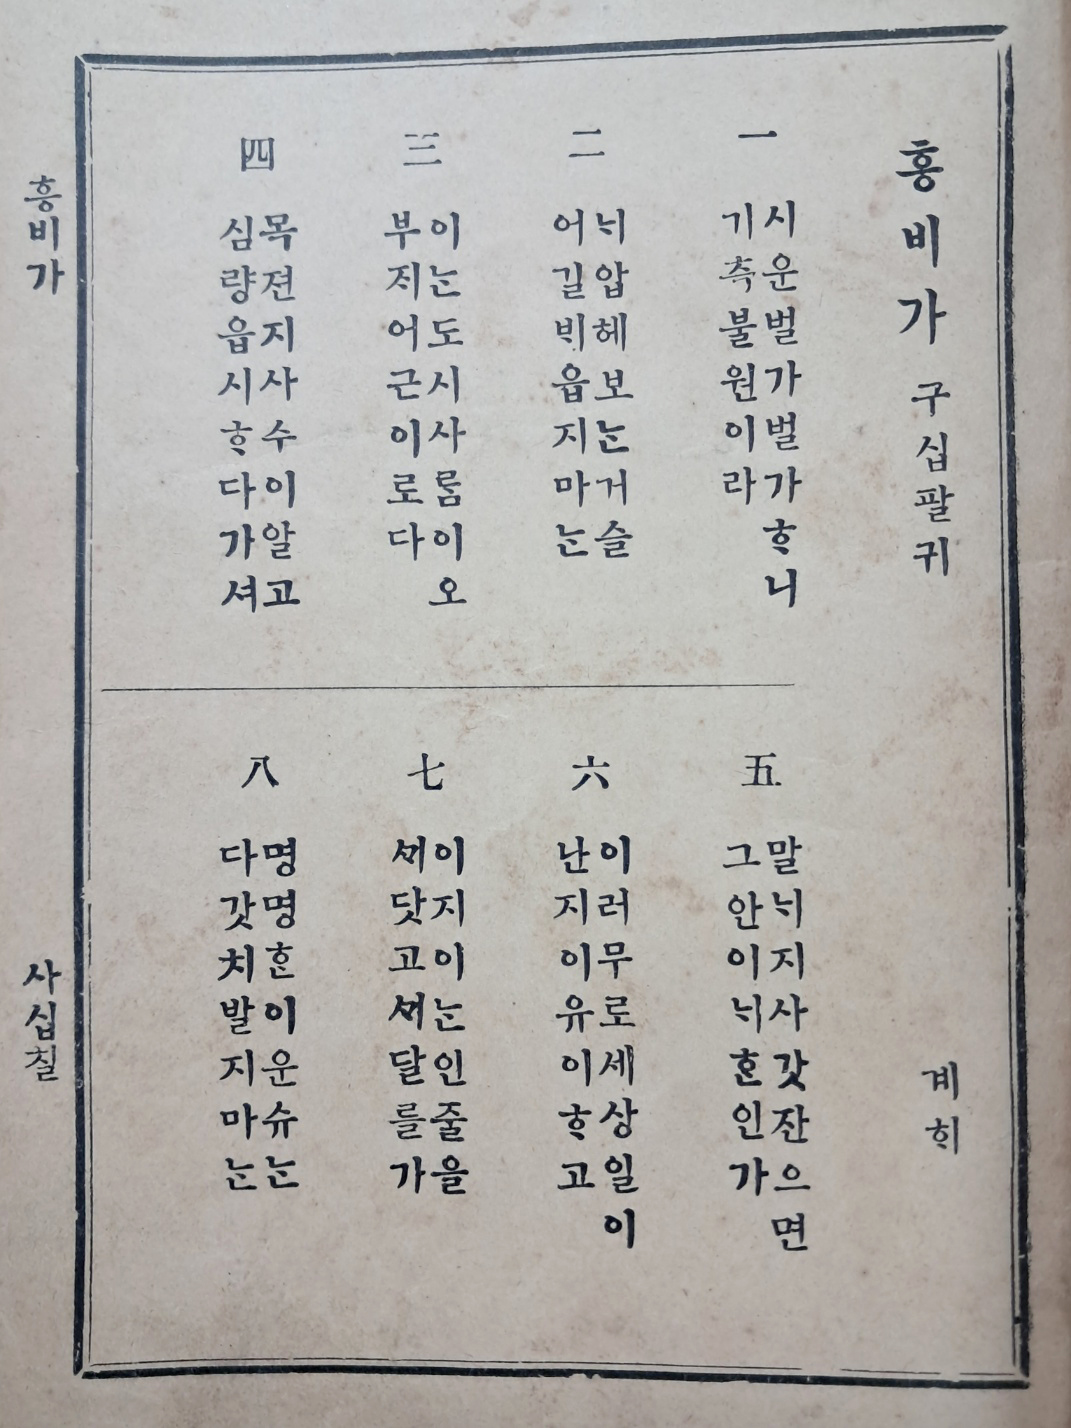 흥비가 구십팔귀 계ᄒᆡ
一
시운벌가벌가ᄒᆞ니
기측불원이라
二
ᄂᆡ압헤보ᄂᆞᆫ거슬
어길ᄇᆡ읍지마ᄂᆞᆫ
三
이ᄂᆞᆫ도시사ᄅᆞᆷ이오
부ᄌᆡ어근이로다
四
목젼지사수이알고
심량읍시ᄒᆞ다가셔
五
말ᄂᆡ지사갓잔으면
그안이ᄂᆡᄒᆞᆫ인가
六
이러무로세상일이
난지이유이ᄒᆞ고
七
이지이ᄂᆞᆫ인줄을
ᄭᆡ닷고ᄭᆡ달를가
八
명명ᄒᆞᆫ이운슈ᄂᆞᆫ
다갓치발지마ᄂᆞᆫ
흥비가
사십칠